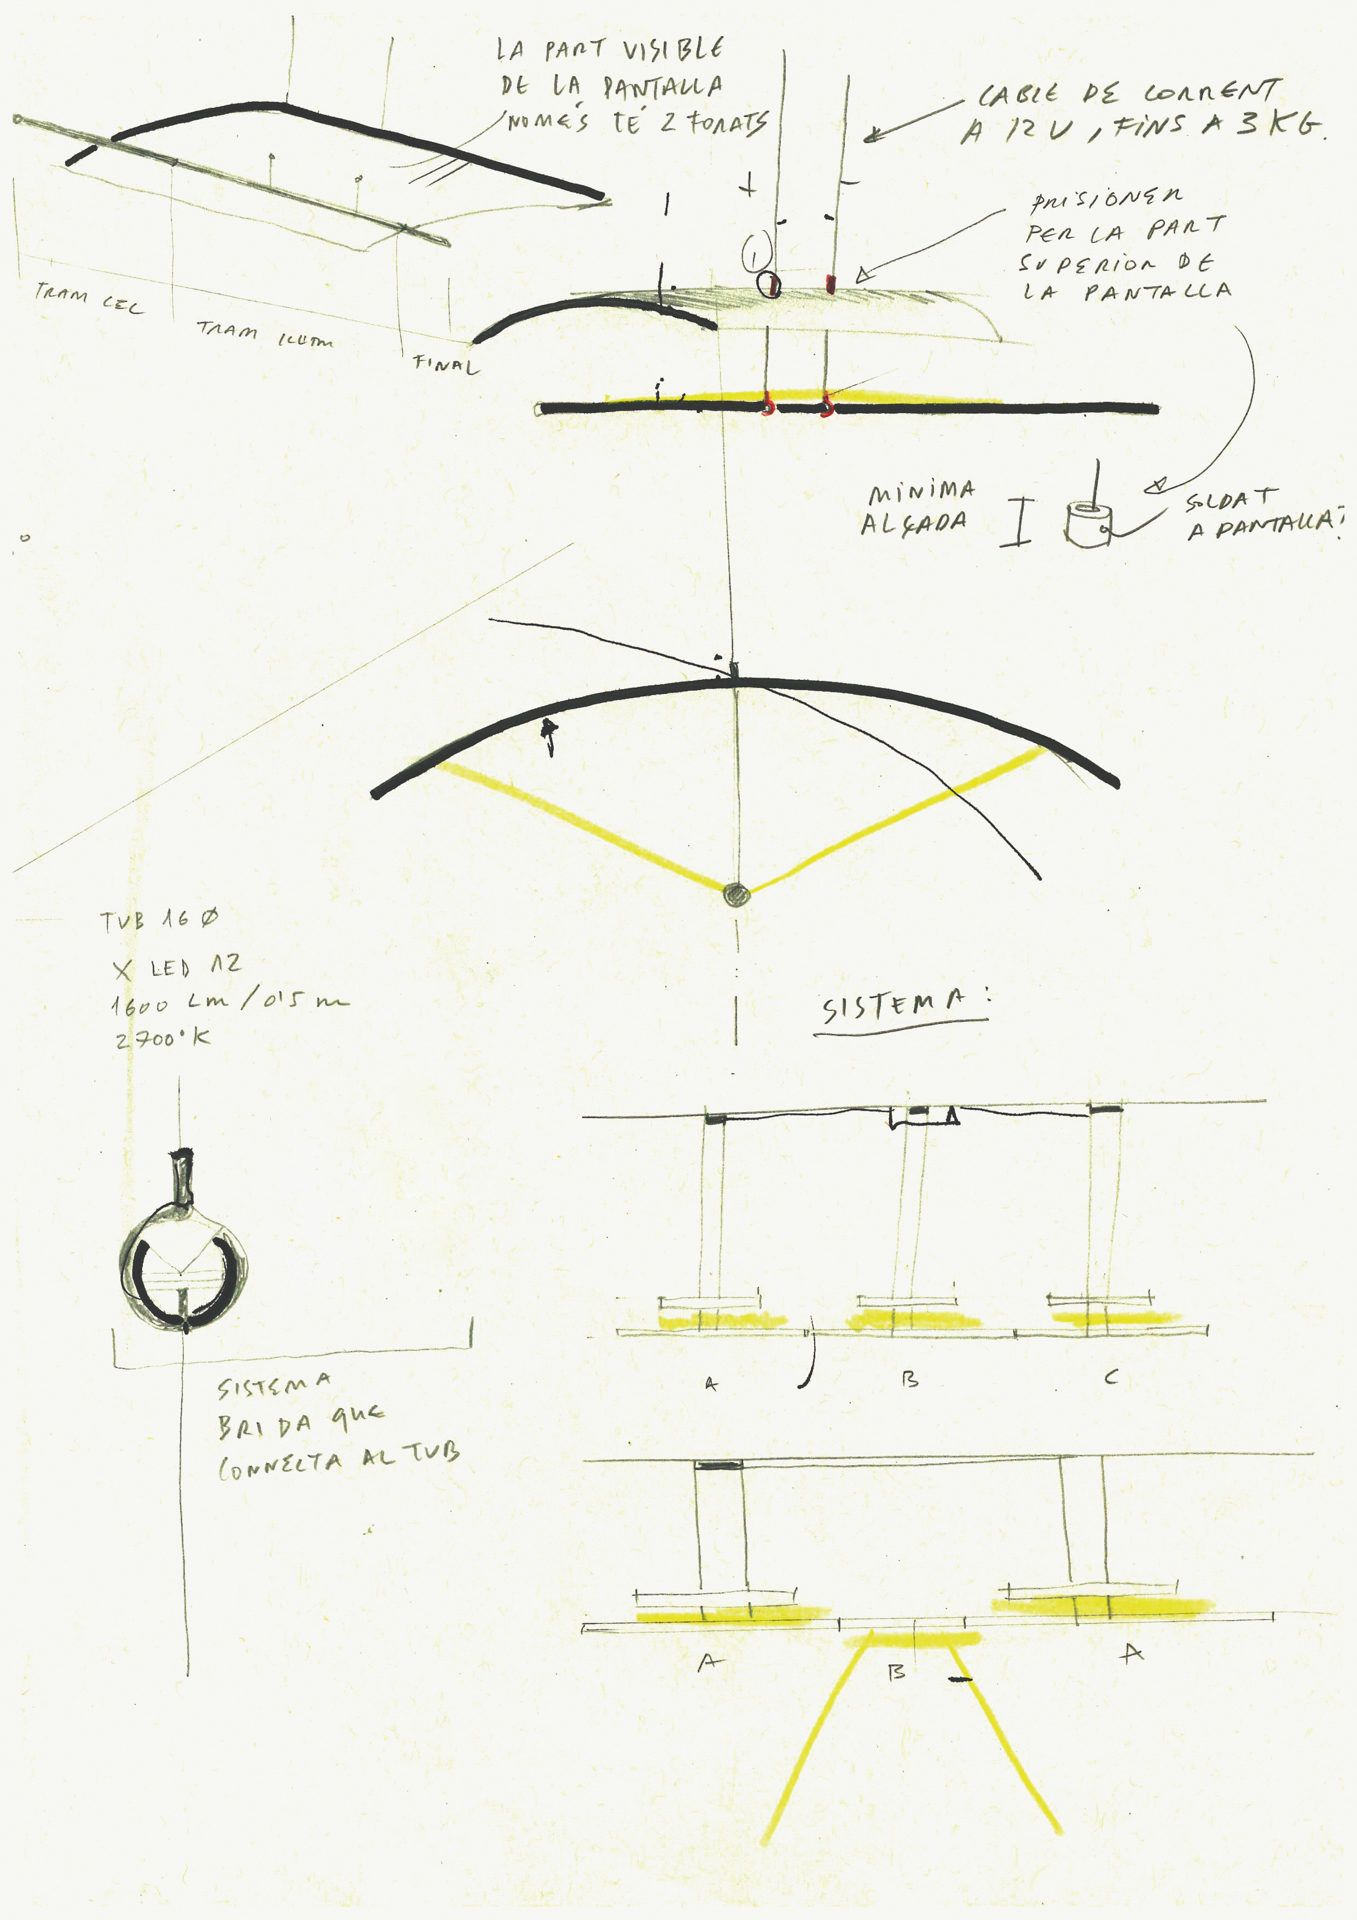 LA PART VISIBLE
DE LA PANTALLA
NOMÉS TÉ 2 FORATS
CABLE DE CORRENT
A 12 V, FINS A 3 KG.
PRISIONER
PER LA PART
SUPERIOR DE
LA PANTALLA
TRAM CEC
TRAM
FINAL
+
1
MINIMA
ALÇADA
SOLDAT
A PANTALLA?
TUB 16 Ø
X LED 12
1600 Lm / 0'5 m
2700°K
SISTEMA:
A
B
C
SISTEMA
BRIDA QUE
CONNECTA AL TUB
A
B
A